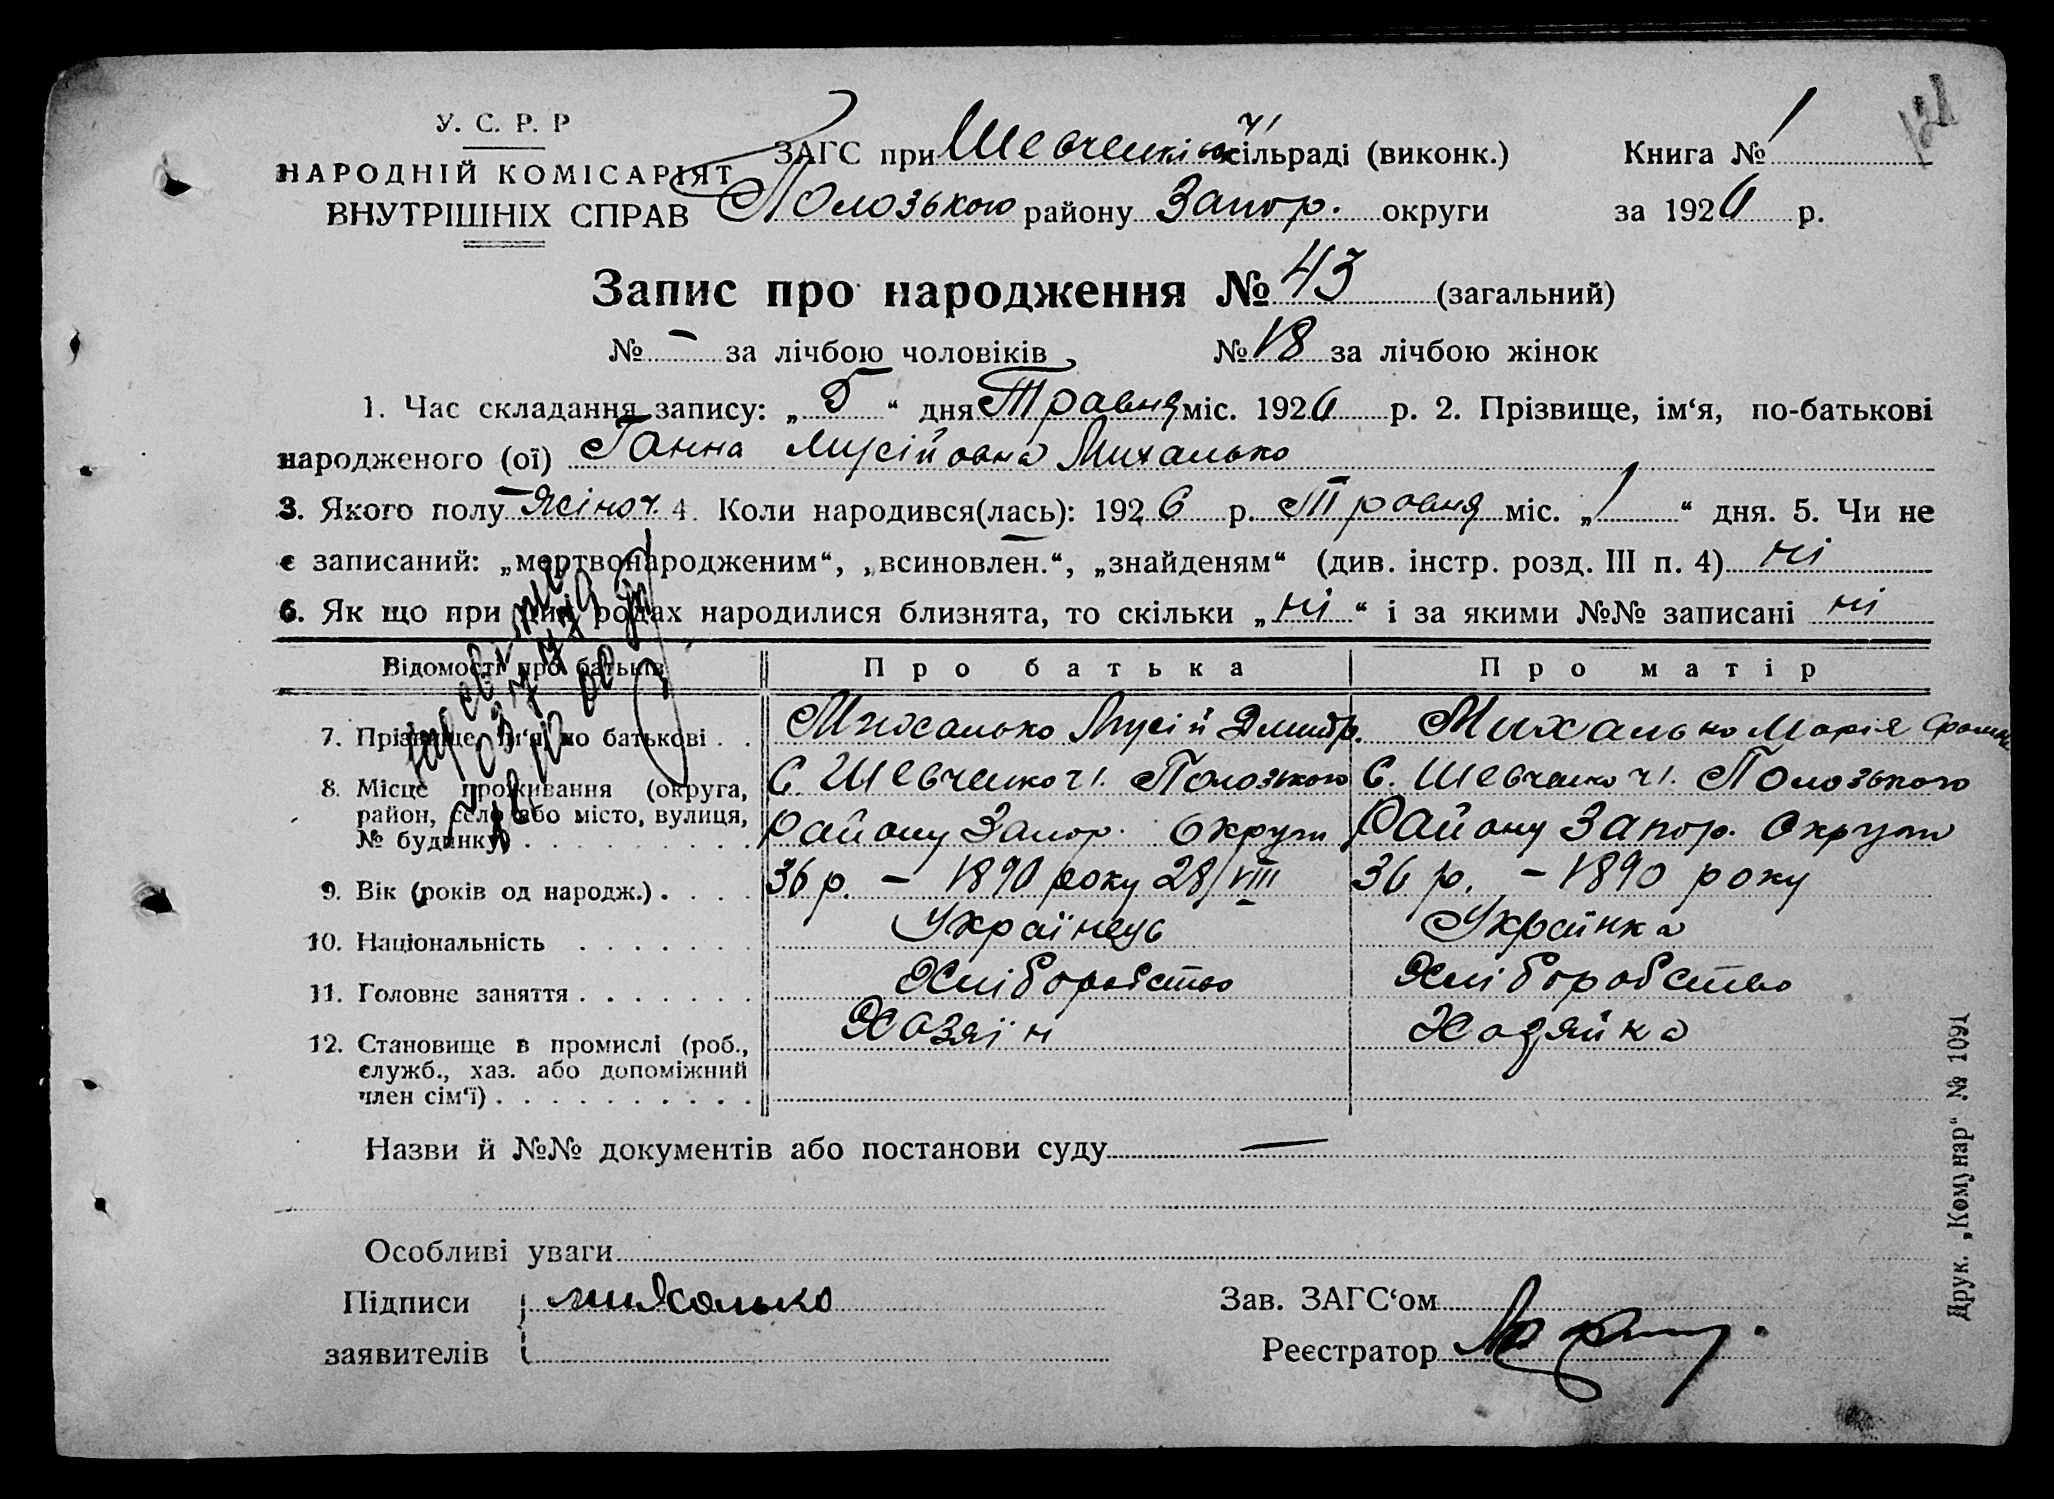 У. С. Р. Р
НАРОДНІЙ КОМІСАРІЯТ
ВНУТРІШНІХ СПРАВ
ЗАГС при Шевченків сільраді (виконк.)
Полозького району Запор. округи
Книга № 1
за 1926 р.
121
Запис про народження № 43 (загальний)
№ – за лічбою чоловіків № 18 за лічбою жінок
1. Час складання запису: „ 5 “ дня Травня міс. 1926 р. 2. Прізвище, ім‘я, по-батькові
народженого (ої) Ганна Мусійовна Михалько
3. Якого полу жіноч. 4. Коли народився(лась): 1926 р. Травня міс. „ 1 “ дня. 5. Чи не
є записаний: „мертвонародженим“, „всиновлен.“, „знайденям“ (див. інстр. розд. III п. 4) ні
6. Як що при цих родах народилися близнята, то скільки „ ні “ і за якими №№ записані ні
Відомості про батьків Про батька Про матір
7. Прізвище, ім‘я, по батькові . . Михалько Мусій Дмитр. Михалько Марія
8. Місце проживання (округа, район, село або місто, вулиця, № будинку) . . . С. Шевченко ч 1. Полозького Району Запор. Округи С. Шевченко ч 1. Полозького Району Запор. Округи
9. Вік (років од народж.) . . . 36 р. – 1890 року 28/VIII 36 р. – 1890 року
10. Національність . . . Українець Українка
11. Головне заняття . . . Хліборобство Хліборобство
12. Становище в промислі (роб., служб., хаз. або допоміжний член сім‘ї) . . . Хазяїн Хазяйка
Назви й №№ документів або постанови суду —
Особливі уваги
Підписи заявителів Михалько
Зав. ЗАГС‘ом
Реєстратор
Друк. „Комунар“ № 1091